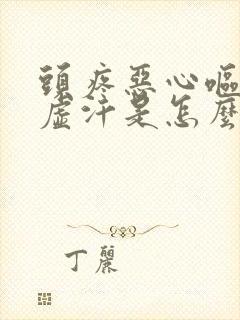 頭疼惡心嘔
虛汗是怎麼
丁麗